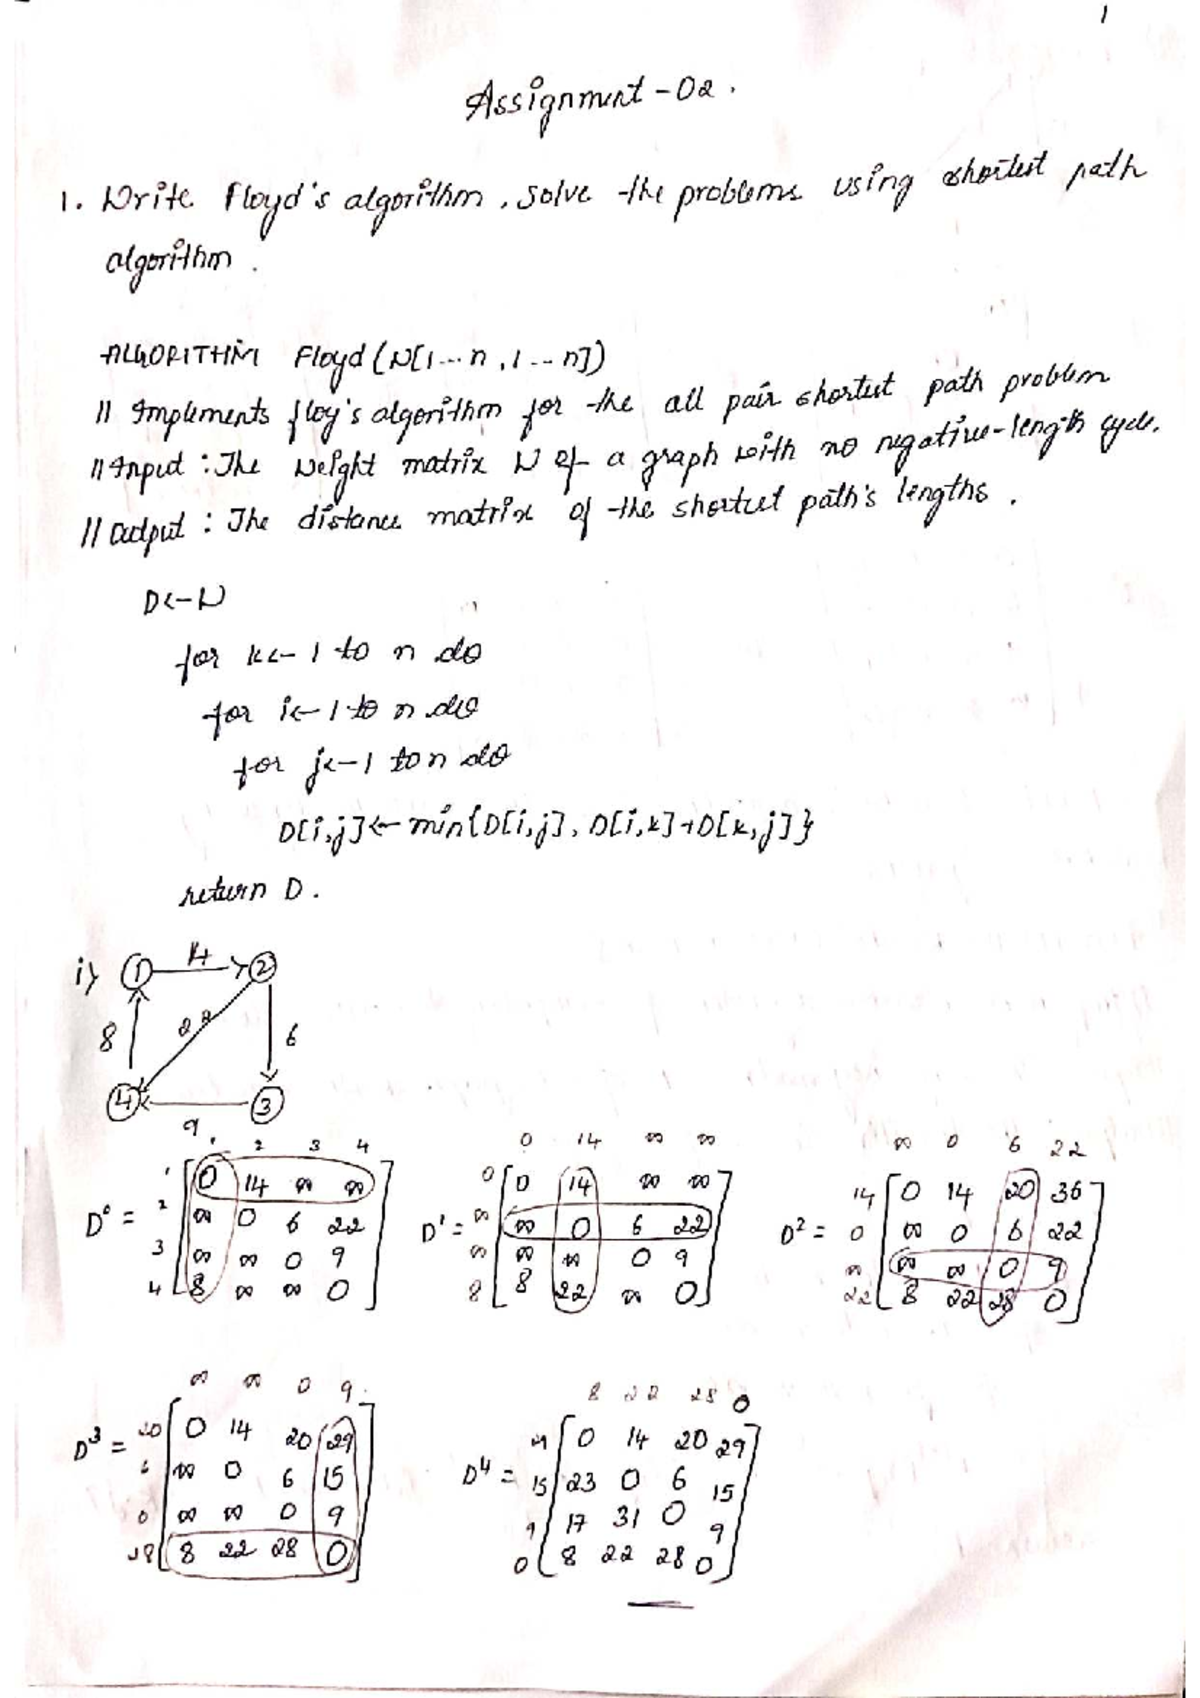 1
Assignment - 02.
1. Write Floyd's algorithm. solve the problems using shortest path
algorithm.
ALGORITHM Floyd (W[1...n, 1...n])
// Implements floy's algorithm for the all pair shortest path problem
// Input : The weight matrix W of a graph with no negative-length cycle.
// Output : The distance matrix of the shortest path's lengths.
D<-W
for k<-1 to n do
for i<-1 to n do
for j<-1 to n do
D[i,j]<-min{D[i,j], D[i,k]+D[k,j]}
return D.
i) 1 14 2
8 22 6
4 3
9
1 2 3 4
0 14 ∞ ∞
∞ 0 6 22
D⁰ = 1 0 14 ∞ ∞
2 ∞ 0 6 22
3 ∞ ∞ 0 9
4 8 ∞ ∞ 0
D¹ = 0 0 14 ∞ ∞
∞ ∞ 0 6 22
∞ ∞ ∞ 0 9
8 8 22 ∞ 0
D² = 14 0 14 20 36
0 ∞ 0 6 22
∞ ∞ ∞ 0 9
22 8 22 28 0
∞ ∞ 0 9
8 22 28 0
D³ = 20 0 14 20 29
6 ∞ 0 6 15
0 ∞ ∞ 0 9
28 8 22 28 0
D⁴ = 29 0 14 20 29
15 23 0 6 15
9 17 31 0 9
0 8 22 28 0